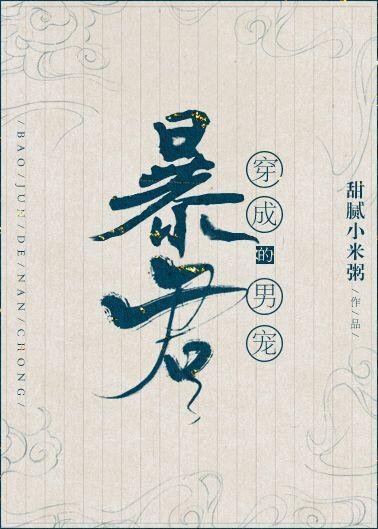 甜腻小米粥/作品/
穿成的男宠
暴君
/BAO/JUN/DE/NAN/CHONG/